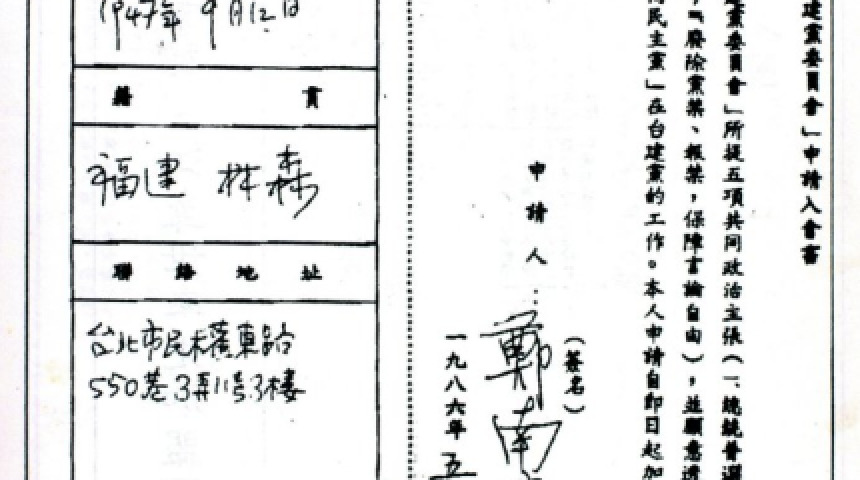 建黨委員會」申請入會書
建黨委員會」所提五項共同政治主張(一、總統普選
,『廢除黨禁、報禁,保障言論自由),並願意透
民主黨」在台建黨的工作。本人申請自即日起加
申請人:
(簽名)
鄭南
一九八六年五
1947年9月12日
籍貫
福建 林森
聯絡地址
台北市民權東路
550巷3弄11号3樓